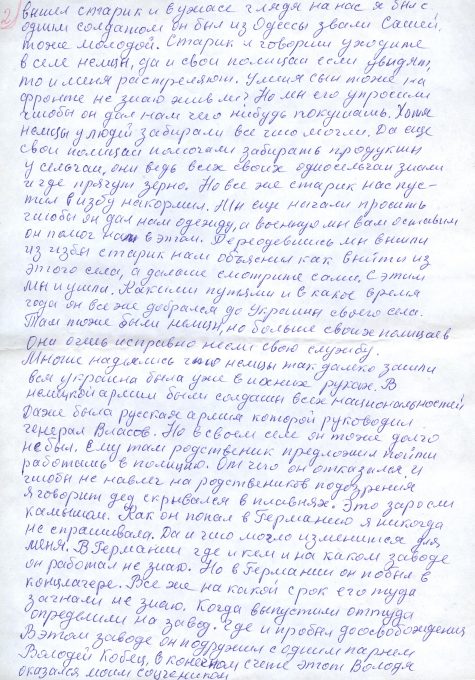 2)
вышел старик и в ужасе глядя на нас я был с
одним солдатом он был из Одессы звали Сашей,
тоже молодой. Старик и говорит уходите
в селе немцы, да и свои полицаи если увидят,
то и меня растреляют. У меня сын тоже на
фронте не знаю жив ли? Но мы его упросили
чтобы он дал нам чего нибудь покушать. Хотя
немцы у людей забирали все что могли. Да еще
свои полицаи помогали забирать продукты
у сельчан, они ведь всех своих односельчан знали
и где прячут зерно. Но все же старик нас пус-
тил в избу накормил. Мы еще начали просить
чтобы он дал нам одежду, а военную мы вам оставим
он помог нам в этом. Переодевшись мы вышли
из избы старик нам объяснил как выйти из
этого села, а дальше смотрите сами. С этим
мы и ушли. Какими путями и в какое время
года он все же добрался до Украины своего села.
Там тоже были немцы, но больше своих полицаев
Они очень исправно несли свою службу.
Многие надеялись что немцы так далеко зашли
вся украина была уже в ихних руках. В
немецкой армии были солдаты всех национальностей
Даже была русская армия которой руководил
генерал Власов. Но в своем селе он тоже долго
не был. Ему там родственик предложил пойти
работать в полицию. От чего он отказался и
чтобы не навлеч на родствеников подозрения
я говорит дед скрывался в плавнях. Это заросли
камышом. Как он попал в Германию я никогда
не спрашивала. Да и что могло изменится для
меня. В Германии где и кем и на каком заводе
он работал не знаю. Но в Германии он побыл в
концлагере. Все же на какой срок его туда
загнали не знаю. Когда выпустили оттуда
определили на завод. Где и пробыл до освобождения
В этом заводе он подружил с одним парнем
Володей Кобец, в конечном счете этот Володя
оказался моим соучеником